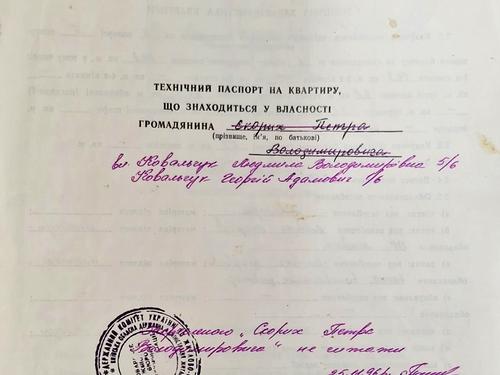 ТЕХНІЧНИЙ ПАСПОРТ НА КВАРТИРУ,
ЩО ЗНАХОДИТЬСЯ У ВЛАСНОСТІ
ГРОМАДЯНИНА Скорих Петра
(прізвище, ім'я, по батькові)
Володимировича
вл. Ковальчук Людмила Володимирівна 5/6
Ковальчук Георгій Адамович 1/6
"Скорих Петра
Володимировича" не читати
25.11.96г.
ДЕРЖАВНИЙ КОМІТЕТ УКРАЇНИ ПО ЖИТЛОВО